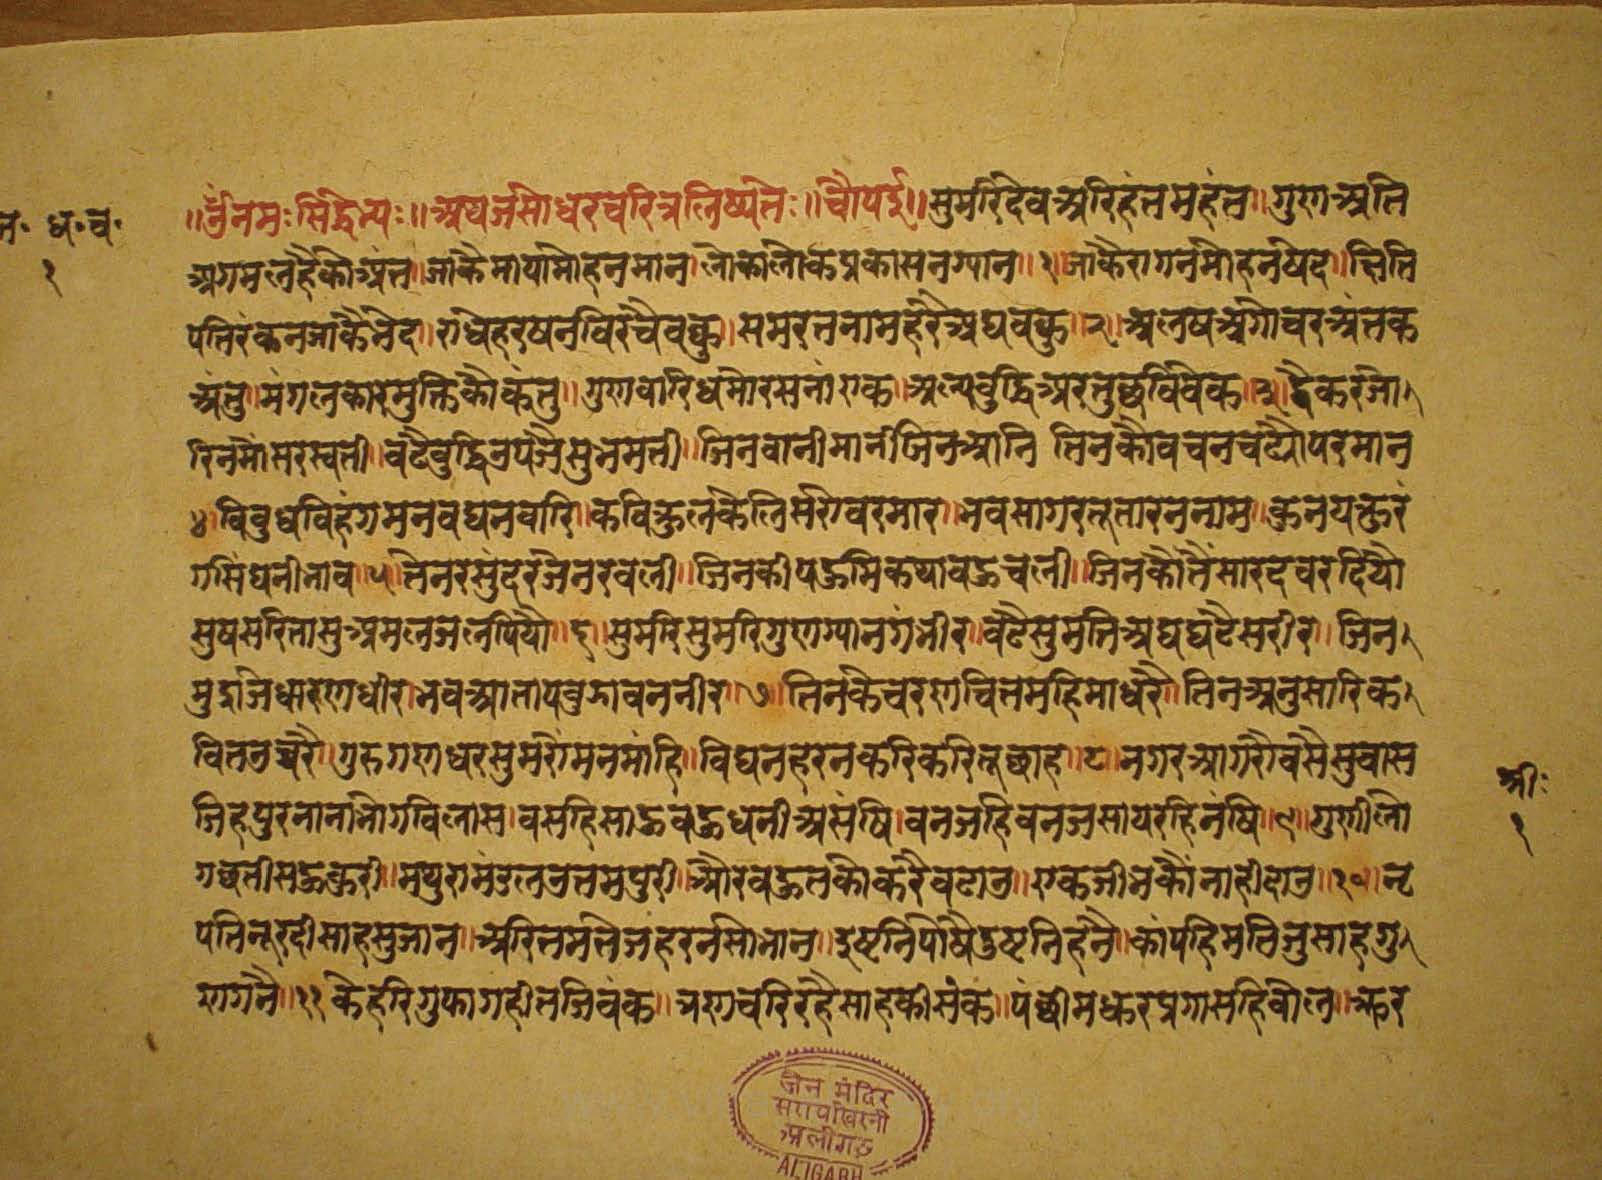 ज॰ ध॰ च॰
१
॥ उँनमः सिद्धेभ्यः ॥ अथ जसोधरचरित्र लिष्यतेः ॥ चौपई ॥ सुमरि देव अरिहंत महंत ॥ गुण अति
अगम लहै को अंत ॥ जाकै माया मोह न मान ॥ लोकालोक प्रकासन ग्यान ॥ १ ॥ जाकै राग न मोह न षेद ॥ छिति
पति रंक न जाकै भेद ॥ राधे हरष न विरचै वक्रु ॥ समरत नाम हरै अघ चक्रु ॥ २ ॥ अलष अगोचर अंतक
अंतु ॥ मंगलकार मुक्ति कौ कंतु ॥ गुण वारिध मो रसना एक ॥ अल्प बुद्धि अर तुछ विवेक ॥ ३ ॥ द्वै कर जो
रि नमौ सरस्वती ॥ बढै बुद्धि उपजै सुभ मती ॥ जिनवानी मानी जिन आनि तिनकौ वचन चढ्यौ परमान
४ ॥ विबुध विहंगम नव घन वारि ॥ कवि कुल केलि सरोवर मार ॥ भवसागर तू तारन
॥ ५ ॥ ते नर सुंदर ते नर बली ॥ जिनकी पहुमि कथा बहु चली ॥ जिनकौ तैं सारद वर दियौ
सुष सरिता सु अमल जल पियौ ॥ ६ ॥ सुमरि सुमरि गुण ग्यान गंभीर ॥ बढै सुमति अघ घटै सरीर ॥ जिन
मुद्रा जे धारण धीर ॥ भव आताप बुझावन नीर ॥ ७ ॥ तिनके चरण चित्त महि मा धरै ॥ तिन अनुसारि क
वित उच्चरै ॥ गुरु गणधर सुमरौ मन मांहि ॥ विघन हरन करि करि तू छाह ॥ ८ ॥ नगर आगरौ वसै सुवास
जिह पुर नाना भोग विलास ॥ वसहि साहु बहु धनी असंषि ॥ वनजहि वनज सायरहि नंषि ॥ ९ ॥ गुणी लो
ग छत्तीसहु कुरी ॥ मथुरा मंडल उत्तम पुरी ॥ और बहुत कौ करै बढाउ ॥ एक जीभ कौ नाही दाउ ॥ १० ॥ नृ
पति नूरदी साह सुजान ॥ अरि तम तेज हरन सो भान ॥ दुष्टनि पोषै दुष्टनि हनै ॥ कांपहि मति जु साह गु
ण गनै ॥ ११ केहरि
श्रीः
१
जैन मंदिर
अलीगढ़
ALIGARH